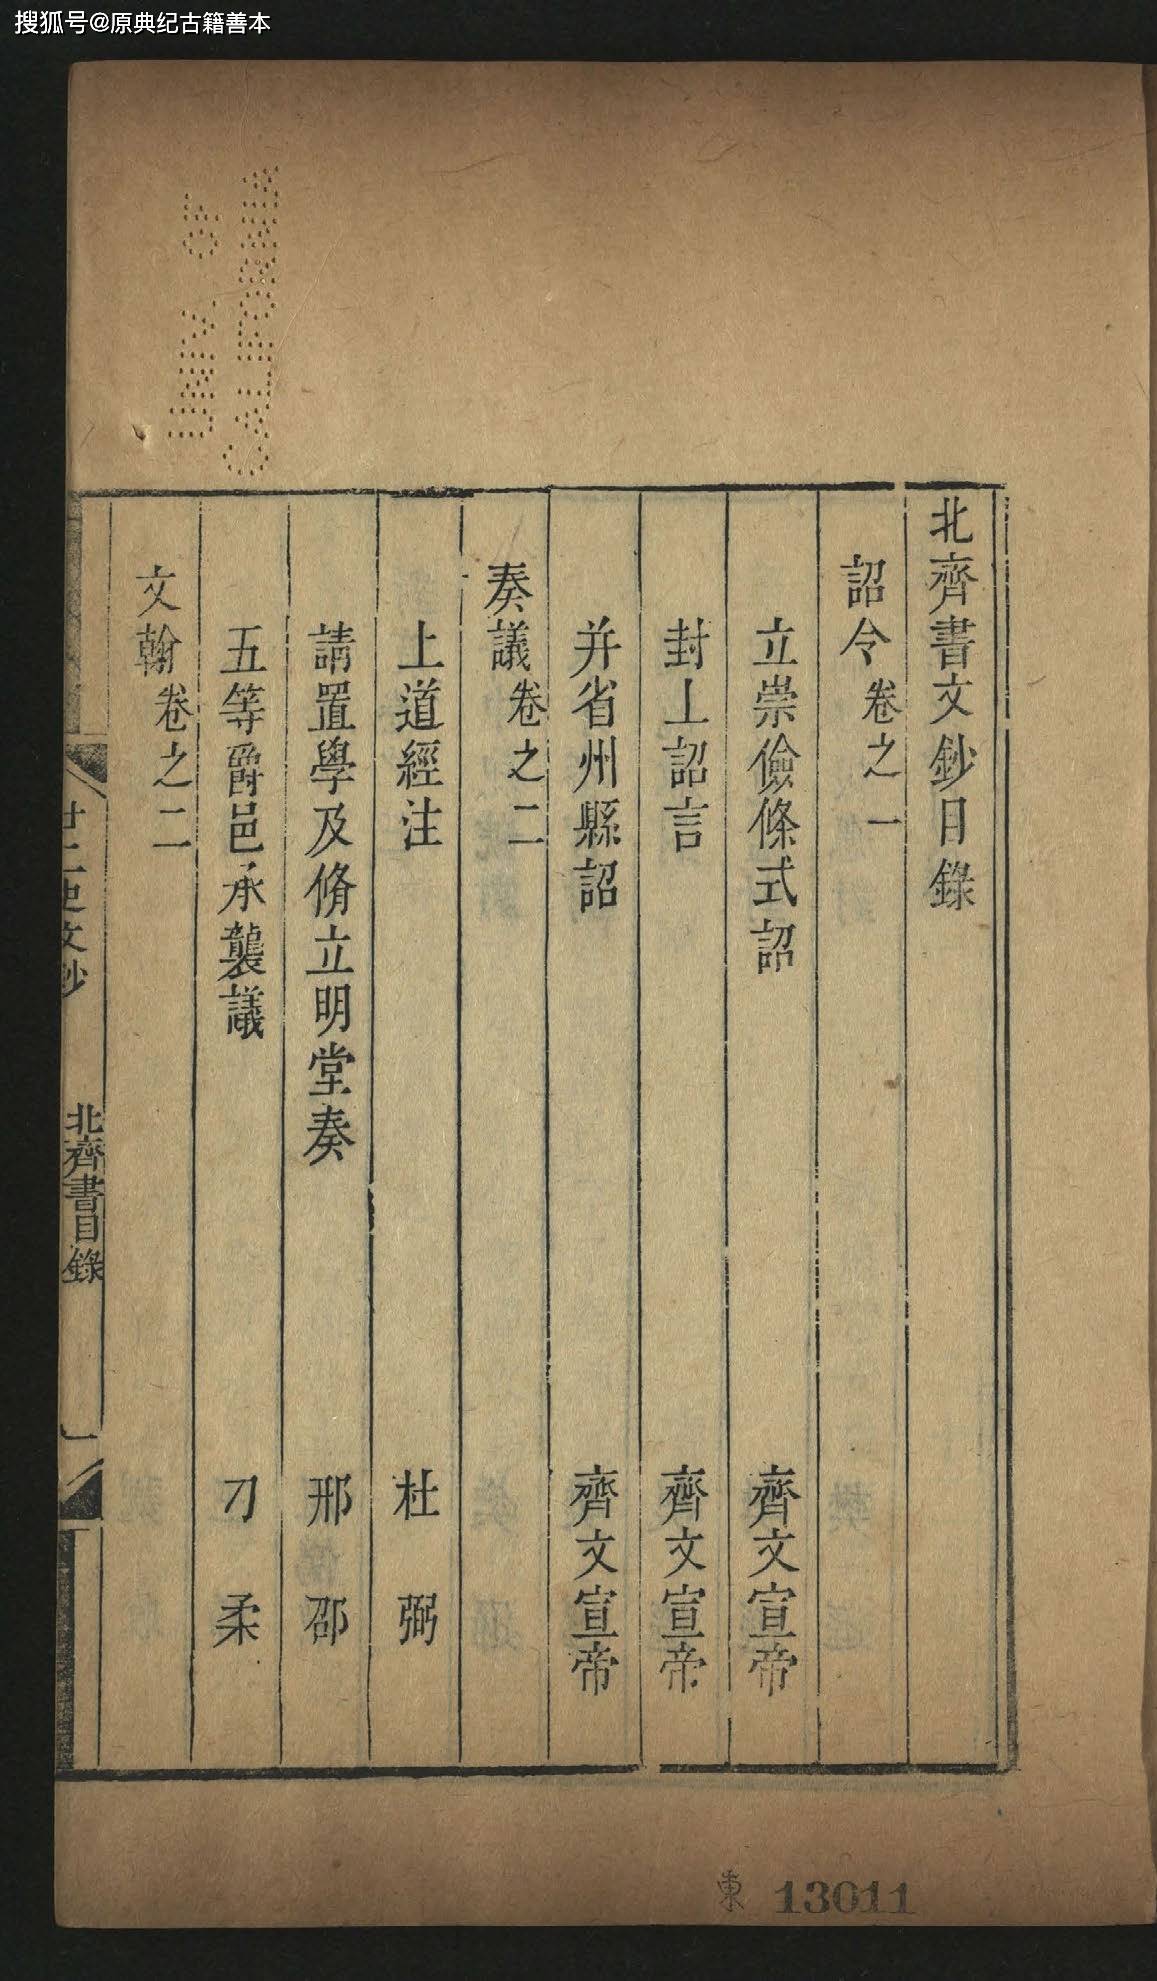 搜狐号@原典纪古籍善本
UNIV. OF
CALIFORNIA
北齊書文鈔目錄
詔令卷之一
立崇儉條式詔 齊文宣帝
封上詔言 齊文宣帝
并省州縣詔 齊文宣帝
奏議卷之二
上道經注 杜弼
請置學及脩立明堂奏 邢邵
五等爵邑承襲議 刁柔
文翰卷之二
廿二史文鈔 北齊書目錄 一
東 13011